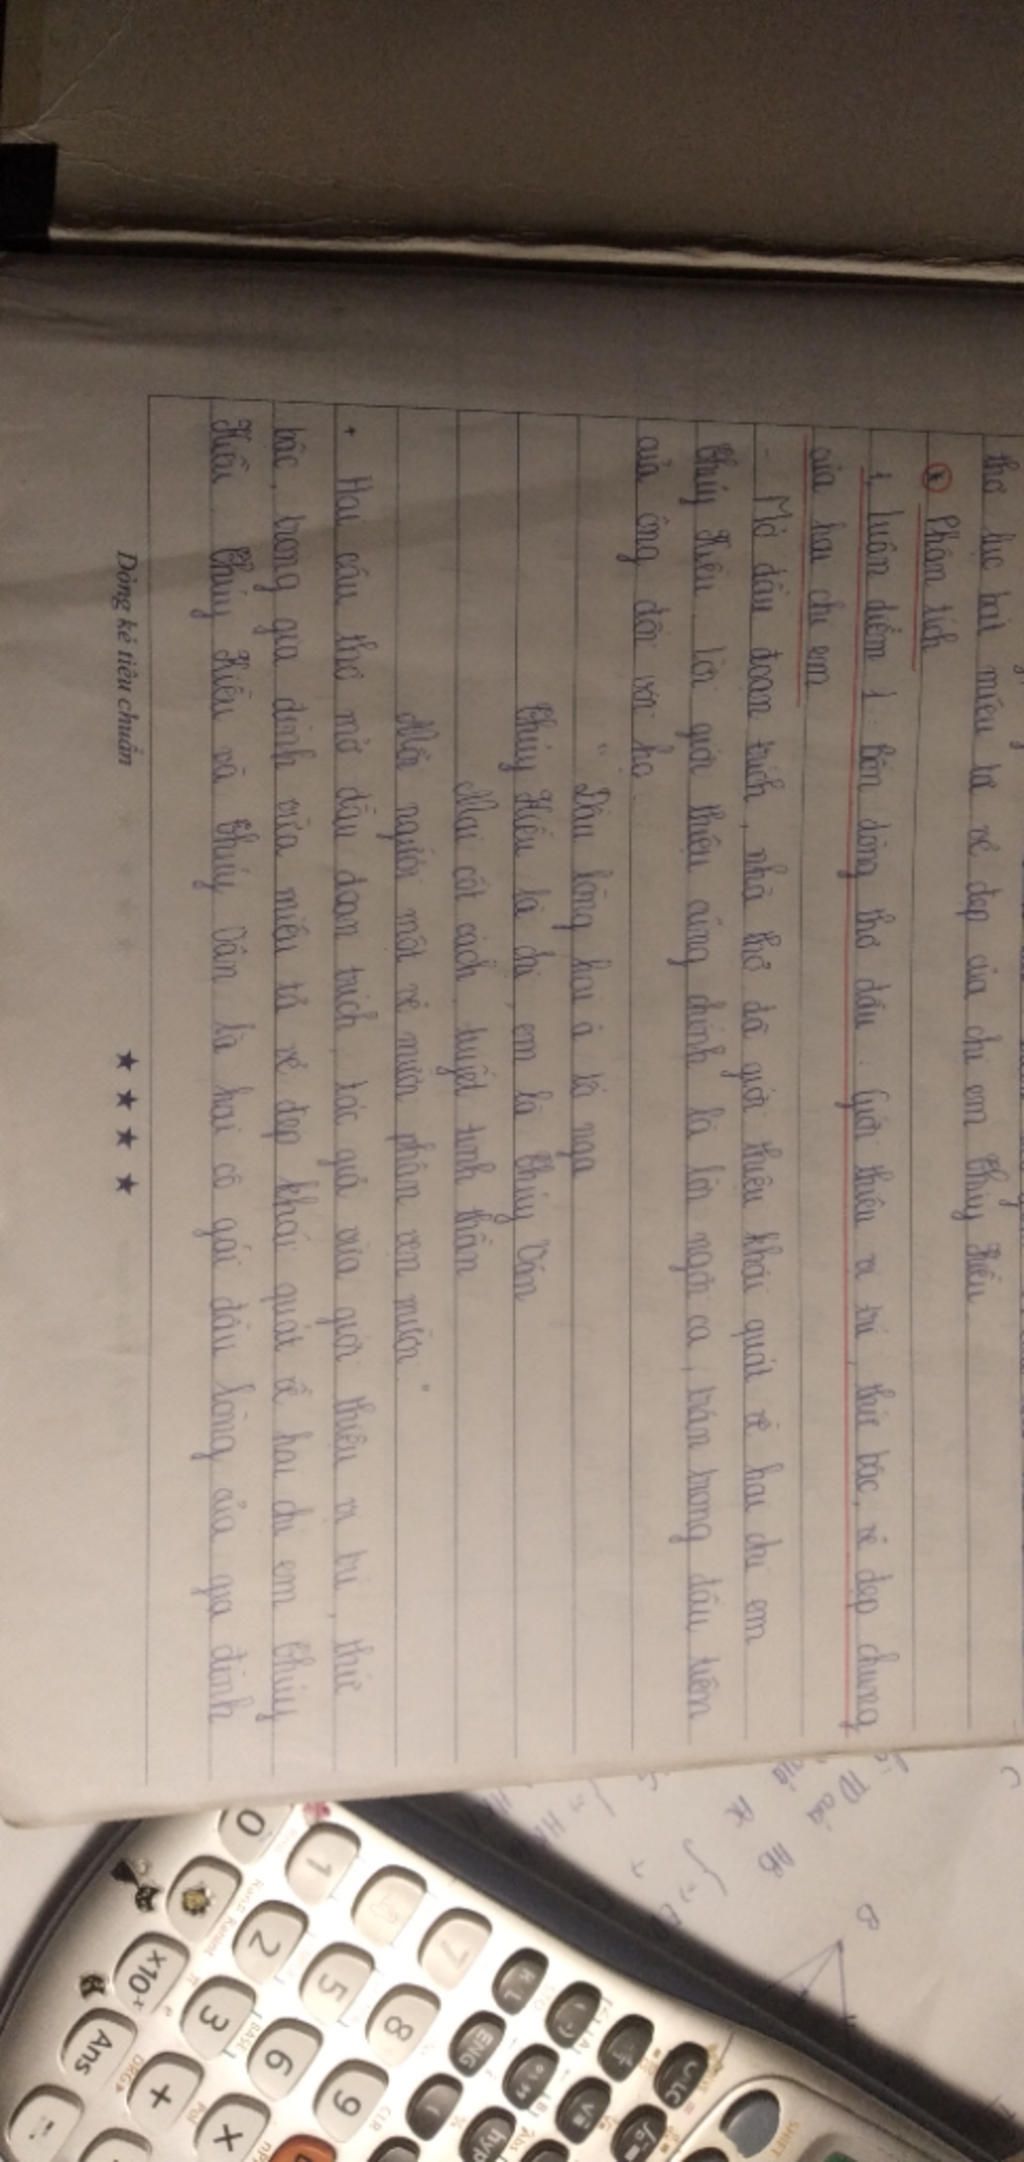 thơ lục bát miêu tả vẻ đẹp của chị em Thúy Kiều
* Phân tích
1, Luận điểm 1: Bốn dòng thơ đầu: Giới thiệu vị trí, thứ bậc, vẻ đẹp chung
của hai chị em
- Mở đầu đoạn trích, nhà thơ đã giới thiệu khái quát về hai chị em
Thúy Kiều. Lời giới thiệu cũng chính là lời ngợi ca, trân trọng đầu tiên
của ông đối với họ
"Đầu lòng hai ả tố nga
Thúy Kiều là chị, em là Thúy Vân
Mai cốt cách, tuyết tinh thần
Mỗi người một vẻ mười phân vẹn mười."
+ Hai câu thơ mở đầu đoạn trích, tác giả vừa giới thiệu vị trí, thứ
bậc, trong gia đình vừa miêu tả vẻ đẹp khái quát về hai chị em Thúy
Kiều. Thúy Kiều và Thúy Vân là hai cô gái đầu lòng của gia đình
Dòng kẻ tiêu chuẩn ★ ★ ★ ★
0
1
2
3
5
6
7
8
9
x10ˣ
Ans
+
x
=
ENG
hyp
SHIFT
Abs
CLR